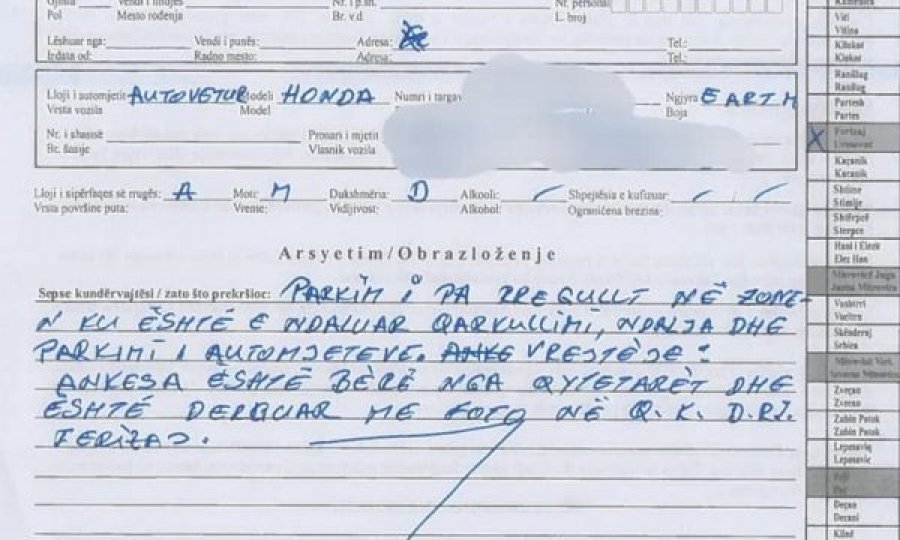 Gjinia Vendi i lindjes Nr. i p.sh. Nr. personal
Pol Mesto rođenja Br. v.d. L. broj
Lëshuar nga: Vendi i punës: Adresa: Tel.:
Izdata od: Radno mesto: Adresa: Tel.:
Lloji i automjetit AUTOVETUR Modeli HONDA Numri i targav Ngjyra EARTH
Vrsta vozila Model Boja
Nr. i shasisë Pronari i mjetit
Br. šasije Vlasnik vozila
Lloji i sipërfaqes së rrugës: A Moti: M Dukshmëria: D Alkooli: Shpejtësia e kufizuar
Vrsta površine puta: Vreme: Vidljivost: Alkohol: Ograničena brzina:
Arsyetim/Obrazloženje
Sepse kundërvajtësi / zato što prekršioc: PARKIM I PA RREGULLT NË ZONE-
N KU ËSHTË E NDALUAR QARKULLIMI, NDALJA DHE
PARKIMI I AUTOMJETEVE. ANKE VREJTËJE:
ANKESA ËSHTË BËRË NGA QYTETARËT DHE
ËSHTË DERGUAR ME FOTO NË Q. K. D.RJ.
FERIZAJ.
Viti
Vitina
Kllokot
Klokot
Ranillug
Ranilug
Partesh
Parteš
X Ferizaj
Uroševac
Kaçanik
Kačanik
Shtime
Štimlje
Shtërpcë
Štrpce
Hani i Elezit
Elez Han
Mitrovicë Jugu
Južna Mitrovica
Vushtrri
Vučitrn
Skënderaj
Srbica
Mitrovicë Veri
Severna Mitrovica
Zveçan
Zvečan
Zubin Potok
Zubin Potok
Leposaviq
Leposavić
Pejë
Peć
Deçan
Dečani
Klinë